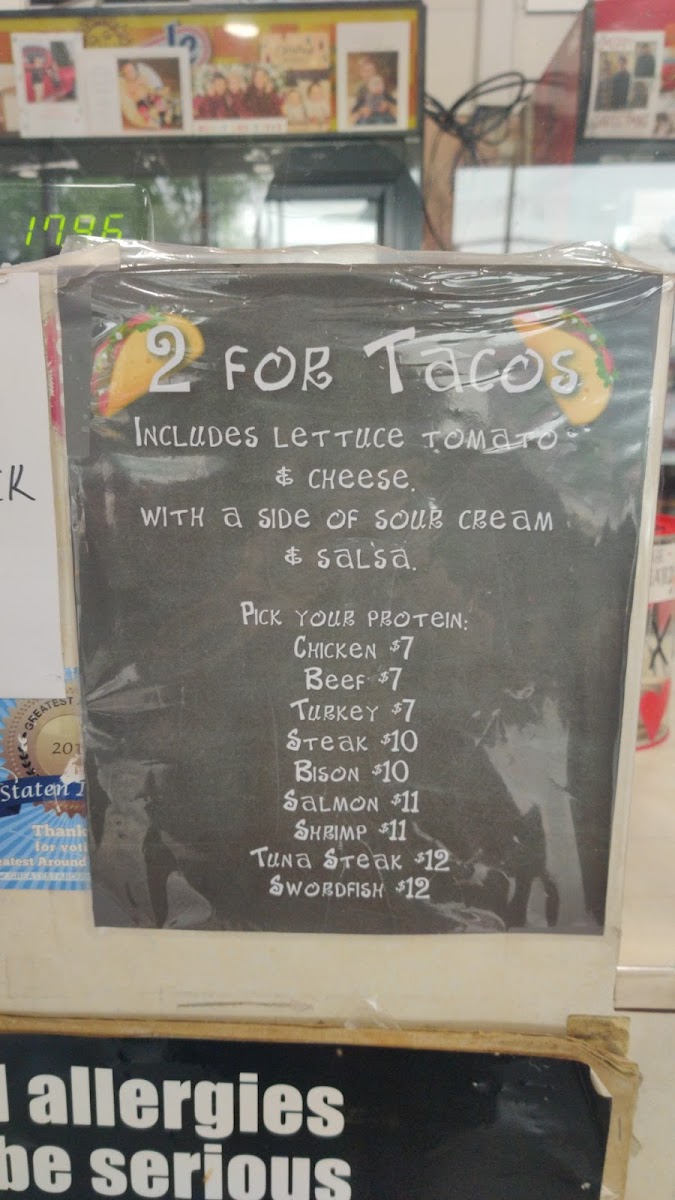 1796
2 FOR TACOS
INCLUDES LETTUCE TOMATO
& CHEESE.
WITH A SIDE OF SOUR CREAM
& SALSA.
PICK YOUR PROTEIN:
CHICKEN $7
BEEF $7
TURKEY $7
STEAK $10
BISON $10
SALMON $11
SHRIMP $11
TUNA STEAK $12
SWORDFISH $12
GREATEST
201
Staten I
Thank
for voti
eatest Around
allergies
be serious